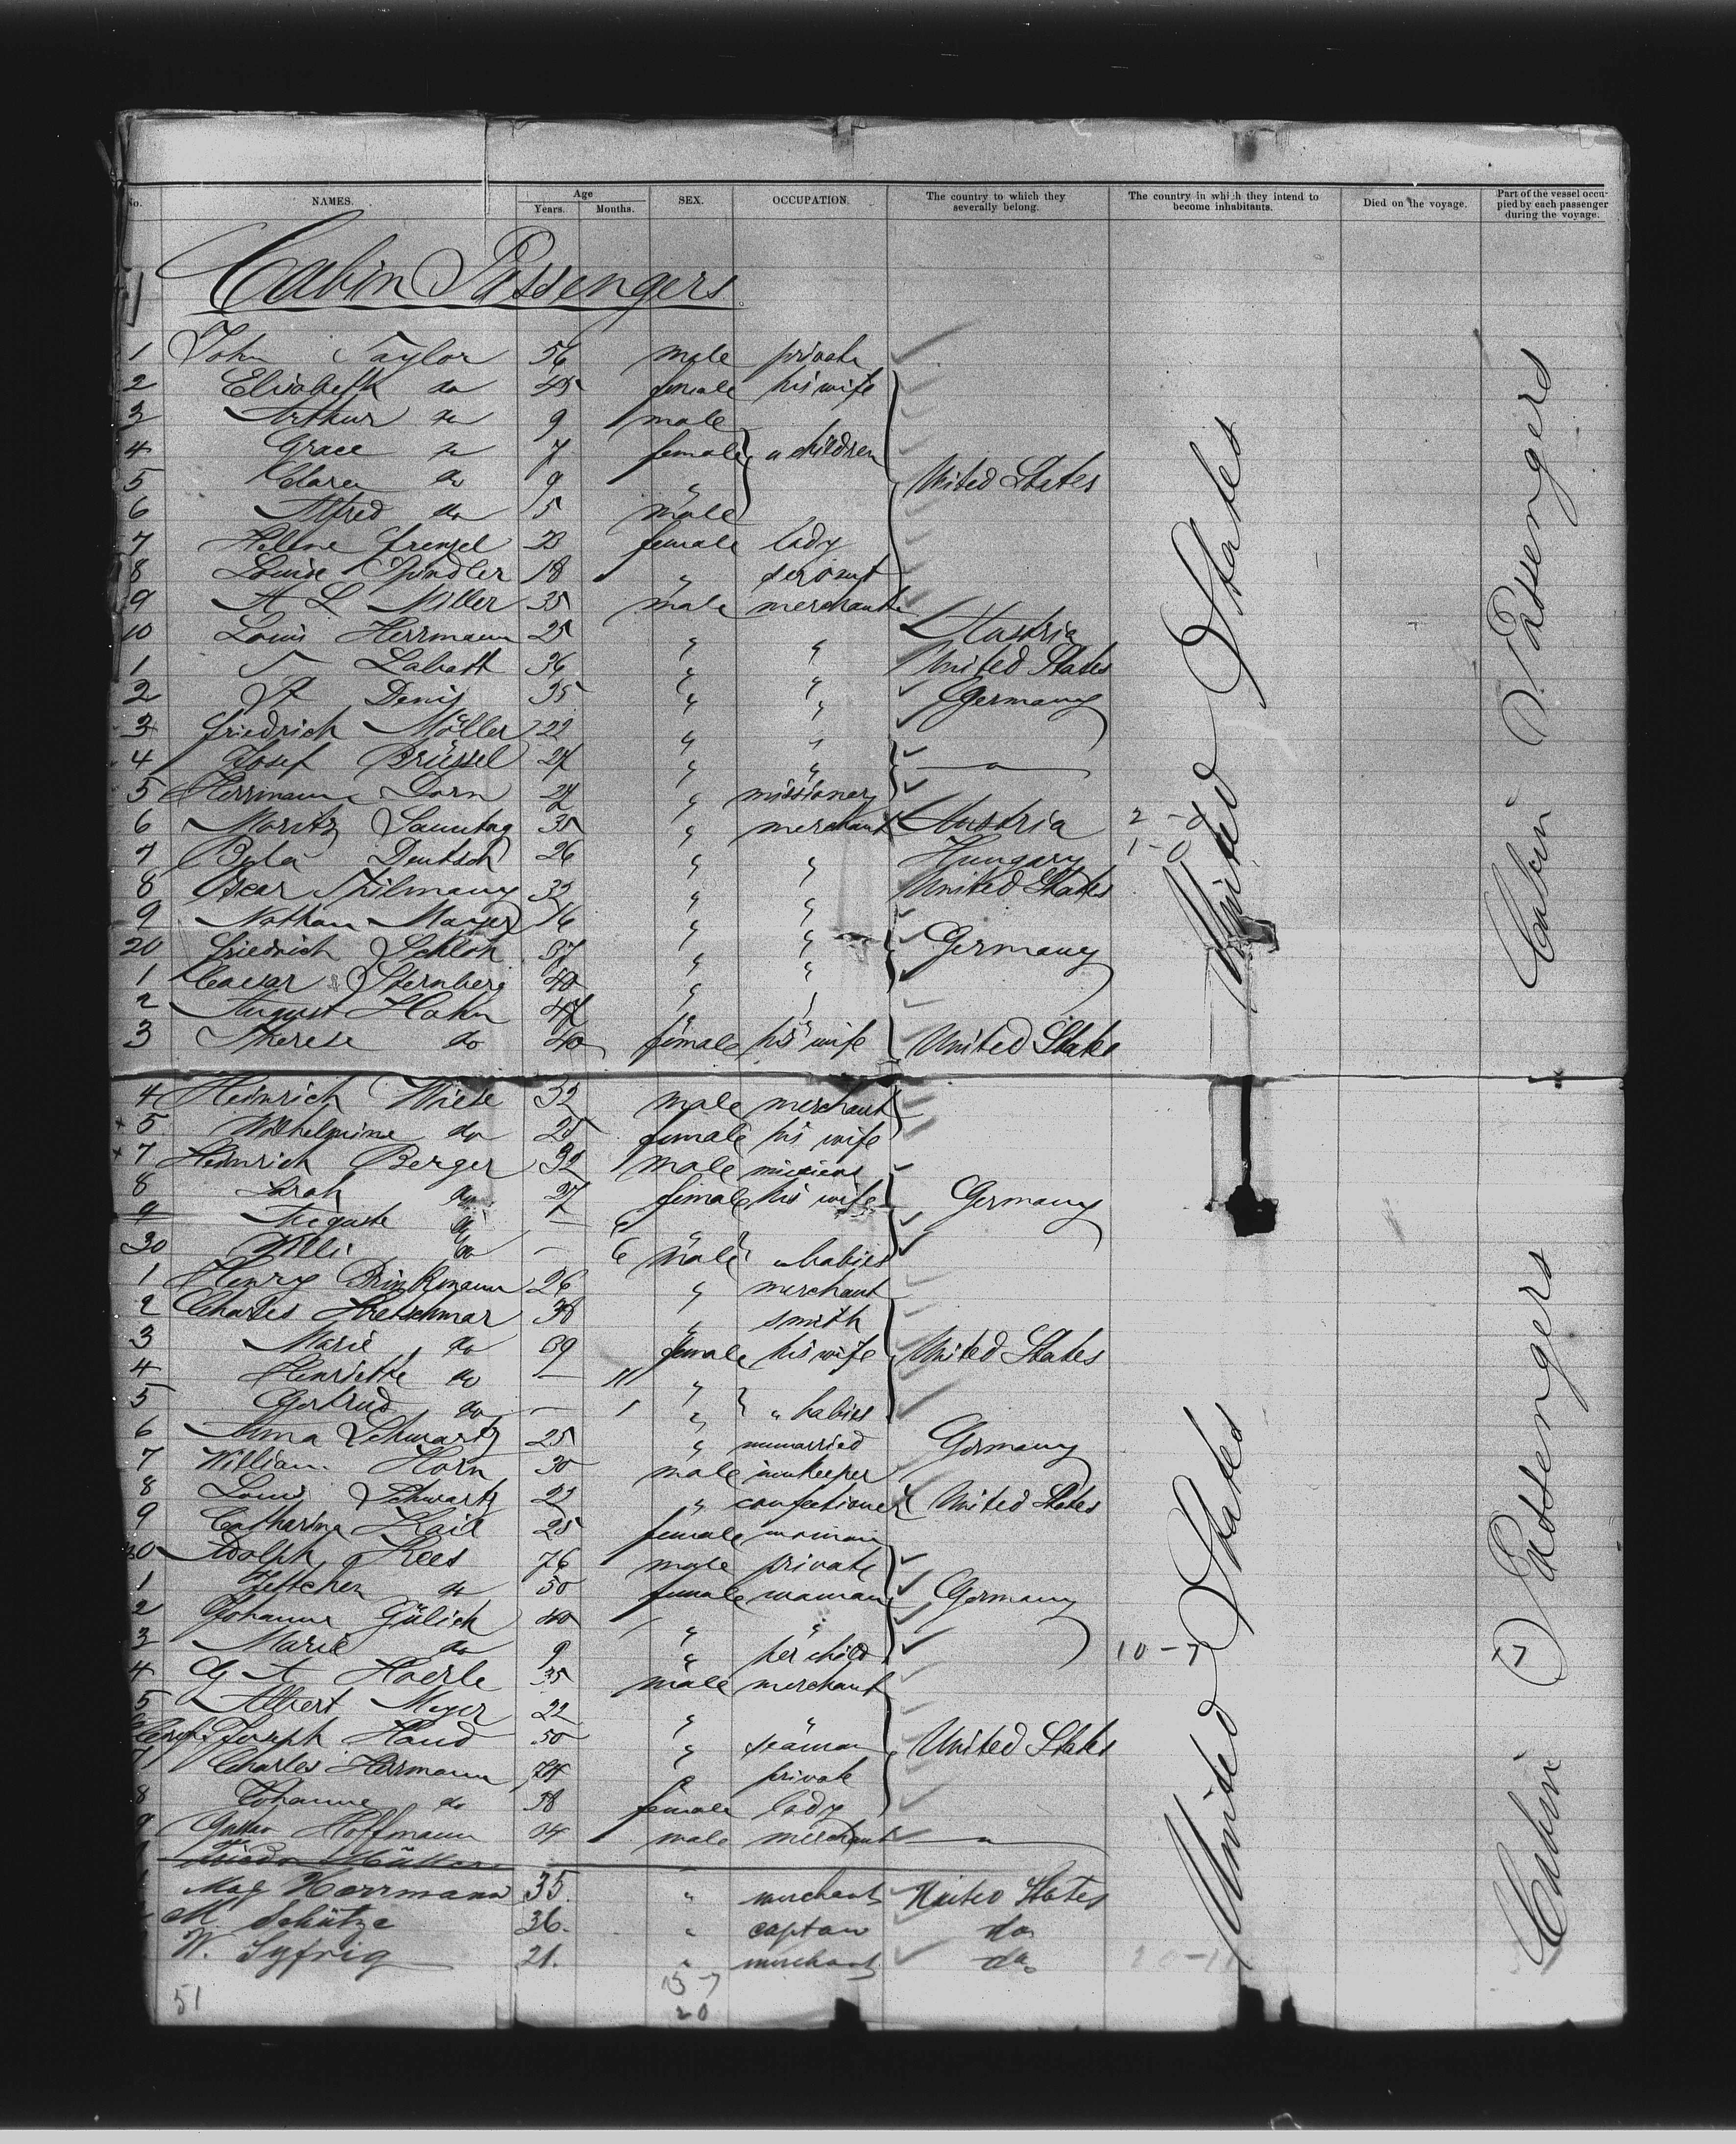 No. NAMES. Age Years. Months. SEX. OCCUPATION. The country to which they severally belong. The country in which they intend to become inhabitants. Died on the voyage. Part of the vessel occupied by each passenger during the voyage.
Cabin Passengers
1 John Taylor 56 male private
2 Elisabeth do 45 female his wife
3 Arthur do 9 male
4 Grace do 7 female " children
5 Clara do 9 " United States
6 Alfred do 5 male
7 Helene Frenzel 23 female lady
8 Louise Spindler 18 " servant
9 A L Miller 35 male merchant
10 Louis Herrmann 25 " " Austria
1 Labatt 36 " " United States
2 A Denis 35 " " Germany
3 Friedrich Möller 22 " "
4 Josef Brüssel 27 " " "
5 Herrmann Dorn 27 " missionary
6 Moritz Sonntag 35 " merchant Austria 2-0
7 Bela Deutsch 26 " " Hungary 1-0
8 Oscar 32 " " United States
9 Nathan Mayer 16 " "
20 Friedrich Schloh 37 " " Germany
1 Caesar Sternberg 40 " "
2 August Hahn 47 " "
3 Therese do 40 female his wife United States
4 Heinrich Wiese 32 male merchant
5 Wilhelmine do 25 female his wife
7 Heinrich Berger 32 male
8 Sarah do 27 female his wife Germany
9 Auguste do — 6 "
30 Willi do — 6 male " babies
1 Henry Brinkmann 26 " merchant
2 Charles Kretschmar 38 " smith
3 Marie do 39 female his wife United States
4 Henriette do — 11 "
5 Gertrud do — 1 " " babies
6 Anna Schwartz 25 " unmarried Germany
7 William Horn 30 male innkeeper
8 Louis Schwartz 22 " confectioner United States
9 Catharina 25 female woman
40 Adolph Kees 76 male private
1 Jettchen do 50 female woman Germany
2 Johanne Gülich 40 " "
3 Marie do 9 " her child 10-7
4 G A Haerle 35 male merchant
5 Albert Meyer 22 " "
Joseph Hand 50 " seaman United States
7 Charles Herrmann 74 " private
8 Johanne do 58 female lady
9 Gustav Hoffmann 34 male merchant "
Max Herrmann 35. " merchant United States
M. Schütze 36. " captain do
W. Syfrig 21. " merchant do
51
13-7
20
United States
United States
Cabin Passengers
Cabin Passengers